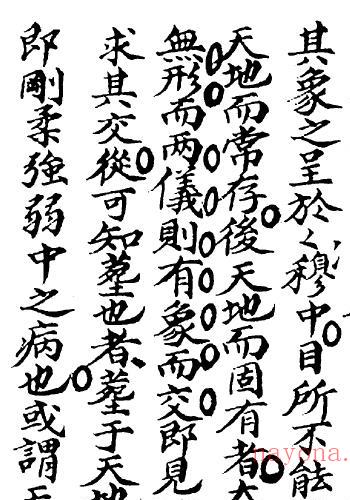 其象之呈於於穆中目所不能
天地而常存後天地而固有者
無形而两儀則有象而交即見
求其交從可知葢也者葢于天地
即剛柔強弱中之病也或謂
nayona.